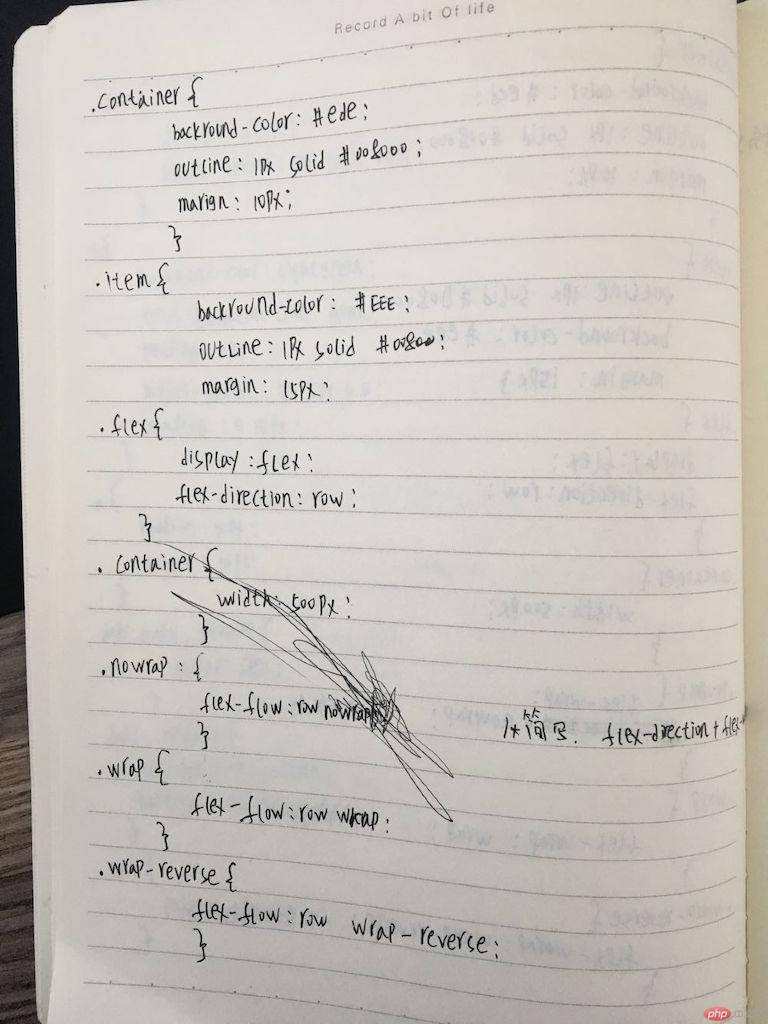 Record A bit Of life
.container {
backround-color: #ede;
outline: 1px solid #008000;
marign: 10px;
}
.item {
backround-color: #EEE;
outline: 1px solid #00800;
margin: 15px;
.flex {
display: flex;
flex-direction: row;
}
.container {
width: 500px;
}
.nowrap: {
flex-flow: row nowrap
/*简写: flex-direction + flex-
}
.wrap {
flex-flow: row wrap;
}
.wrap-reverse {
flex-flow: row wrap-reverse;
}
php